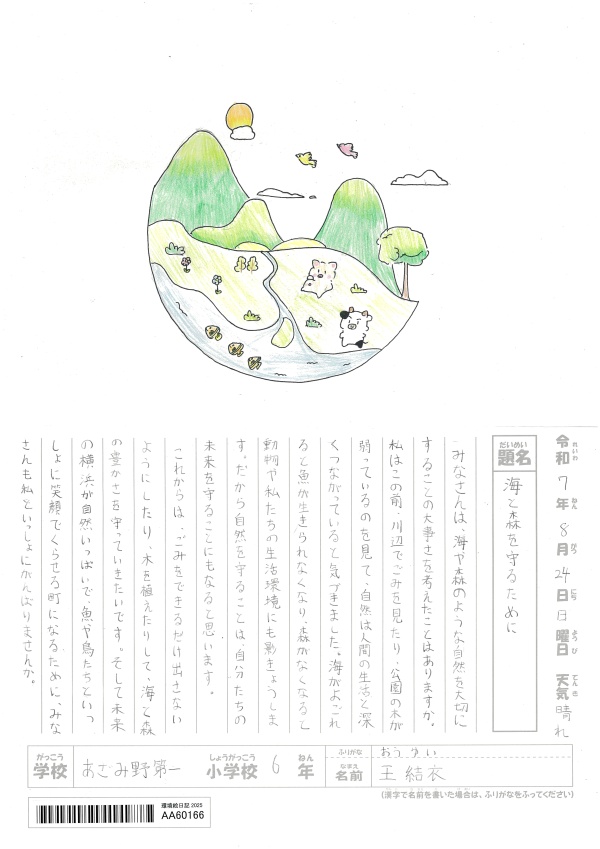 令和7年8月24日日曜日 天気晴れ
れいわ ねん がつ にち ようび てんき
だいめい
題名 海と森を守るために
みなさんは、海や森のような自然を大切に
することの大事さを考えたことはありますか。
私はこの前、川辺でごみを見たり、公園の木が
弱っているのを見て、自然は人間の生活と深
くつながっていると気づきました。海がよごれ
ると魚が生きられなくなり、森がなくなると
動物や私たちの生活環境にも影きょうしま
す。だから自然を守ることは、自分たちの
未来を守ることにもなると思います。
これからは、ごみをできるだけ出さない
ようにしたり、木を植えたりして、海と森
の豊かさを守っていきたいです。そして未来
の横浜が自然いっぱいで、魚や鳥たちといっ
しょに笑顔でくらせる町になるために、みな
さんも私といっしょにがんばりませんか。
がっこう しょうがっこう ねん
学校 あざみ野第一 小学校 6年
ふりがな おう ゆい
なまえ
名前 王 結衣
(漢字で名前を書いた場合は、ふりがなをふってください)
環境絵日記 2025
AA60166